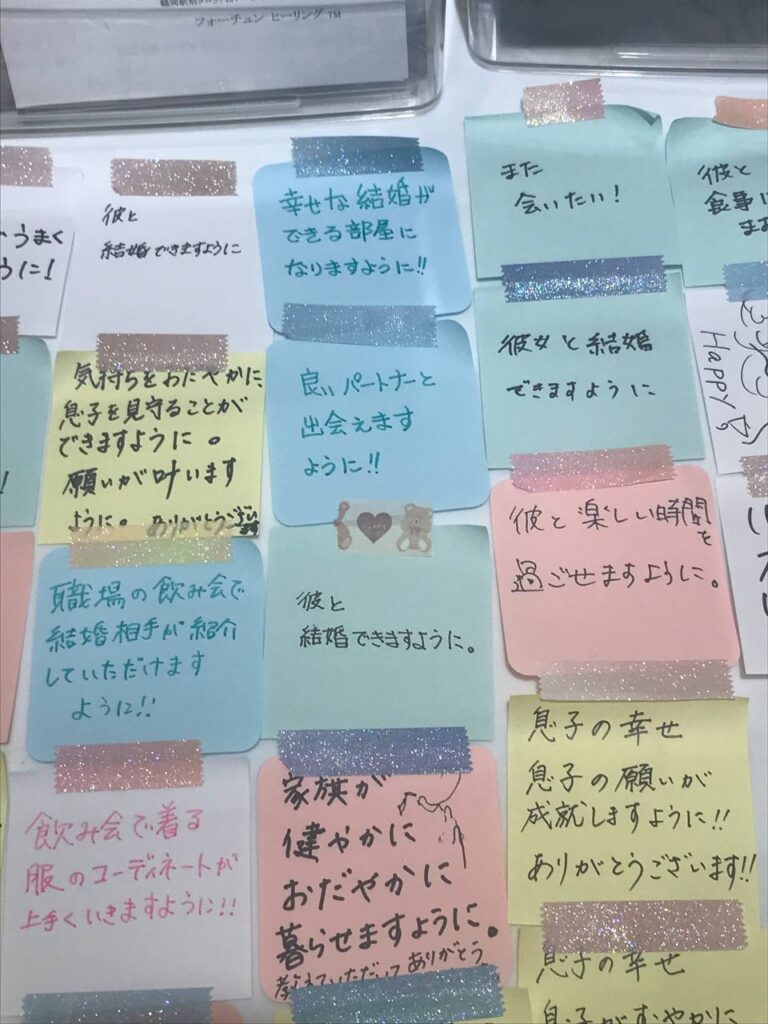 フォーチュン ヒーリング TM
うまく
うに!
彼と
結婚できますように
幸せな結婚が
できる部屋に
なりますように!!
また
会いたい!
彼と
食事に
気持ちをおだやかに、
息子を見守ることが
できますように。
願いが叶います
ように。ありがとうござい
ます
良いパートナーと
出会えます
ように!!
彼女と結婚
できますように
HAPPY
職場の飲み会で
結婚相手が紹介
していただけます
ように!!
彼と
結婚できますように。
彼と楽しい時間
を
過ごせますように。
飲み会で着る
服のコーディネートが
上手くいきますように!!
家族が
健やかに
おだやかに
暮らせますように。
教えていただいて ありがとう
息子の幸せ
息子の願いが
成就しますように!!
ありがとうございます!!
息子の幸せ
息子がすこやかに